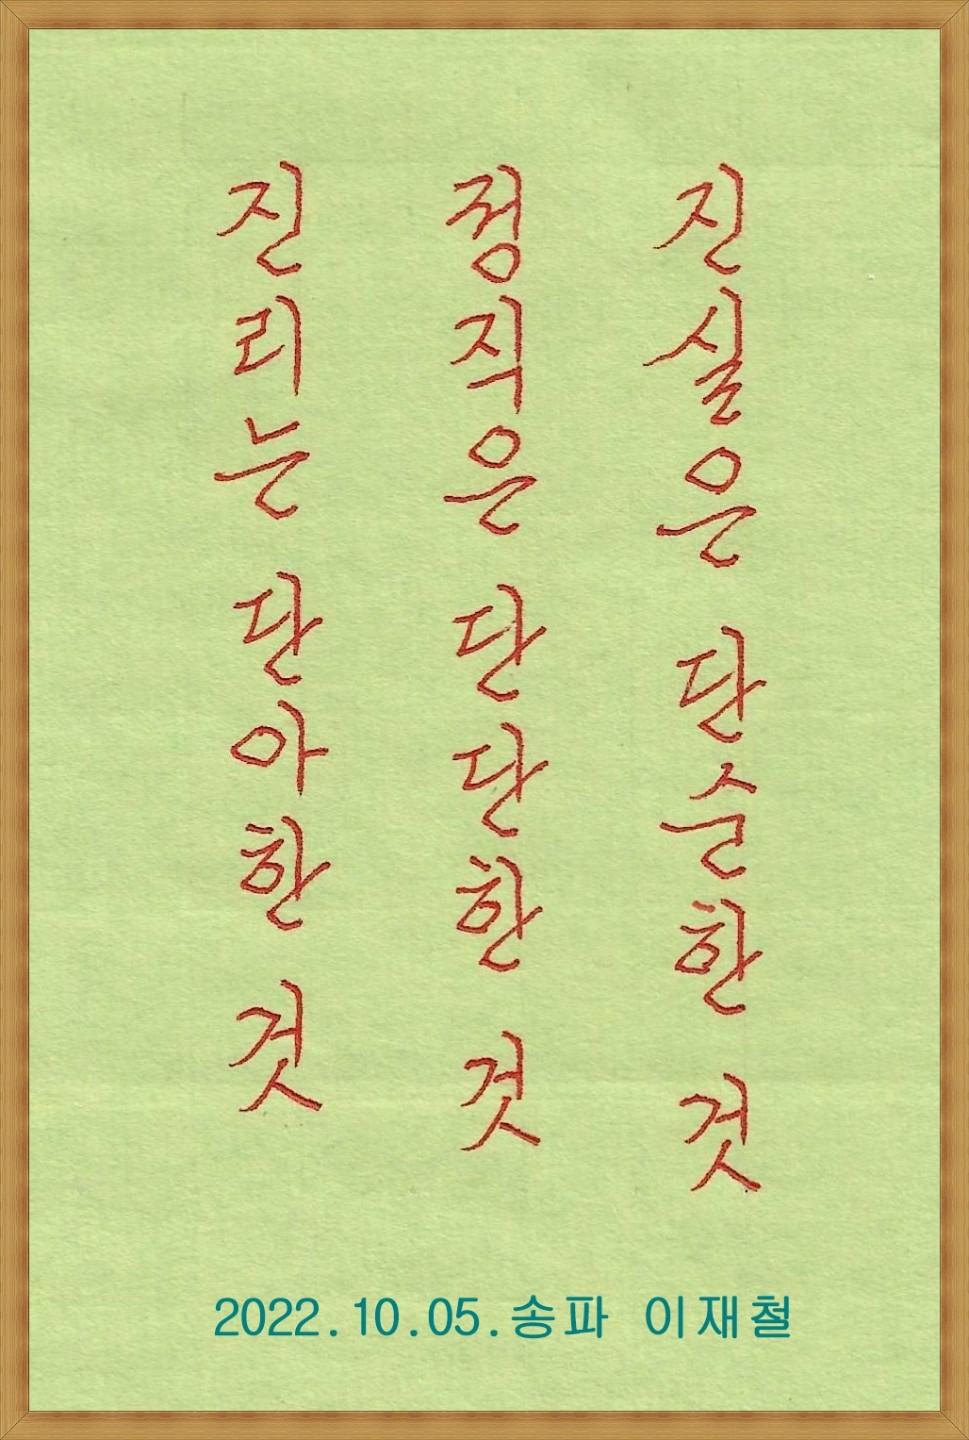 진실은 단순한 것
정직은 단단한 것
진리는 단아한 것
2022.10.05.송파 이재철